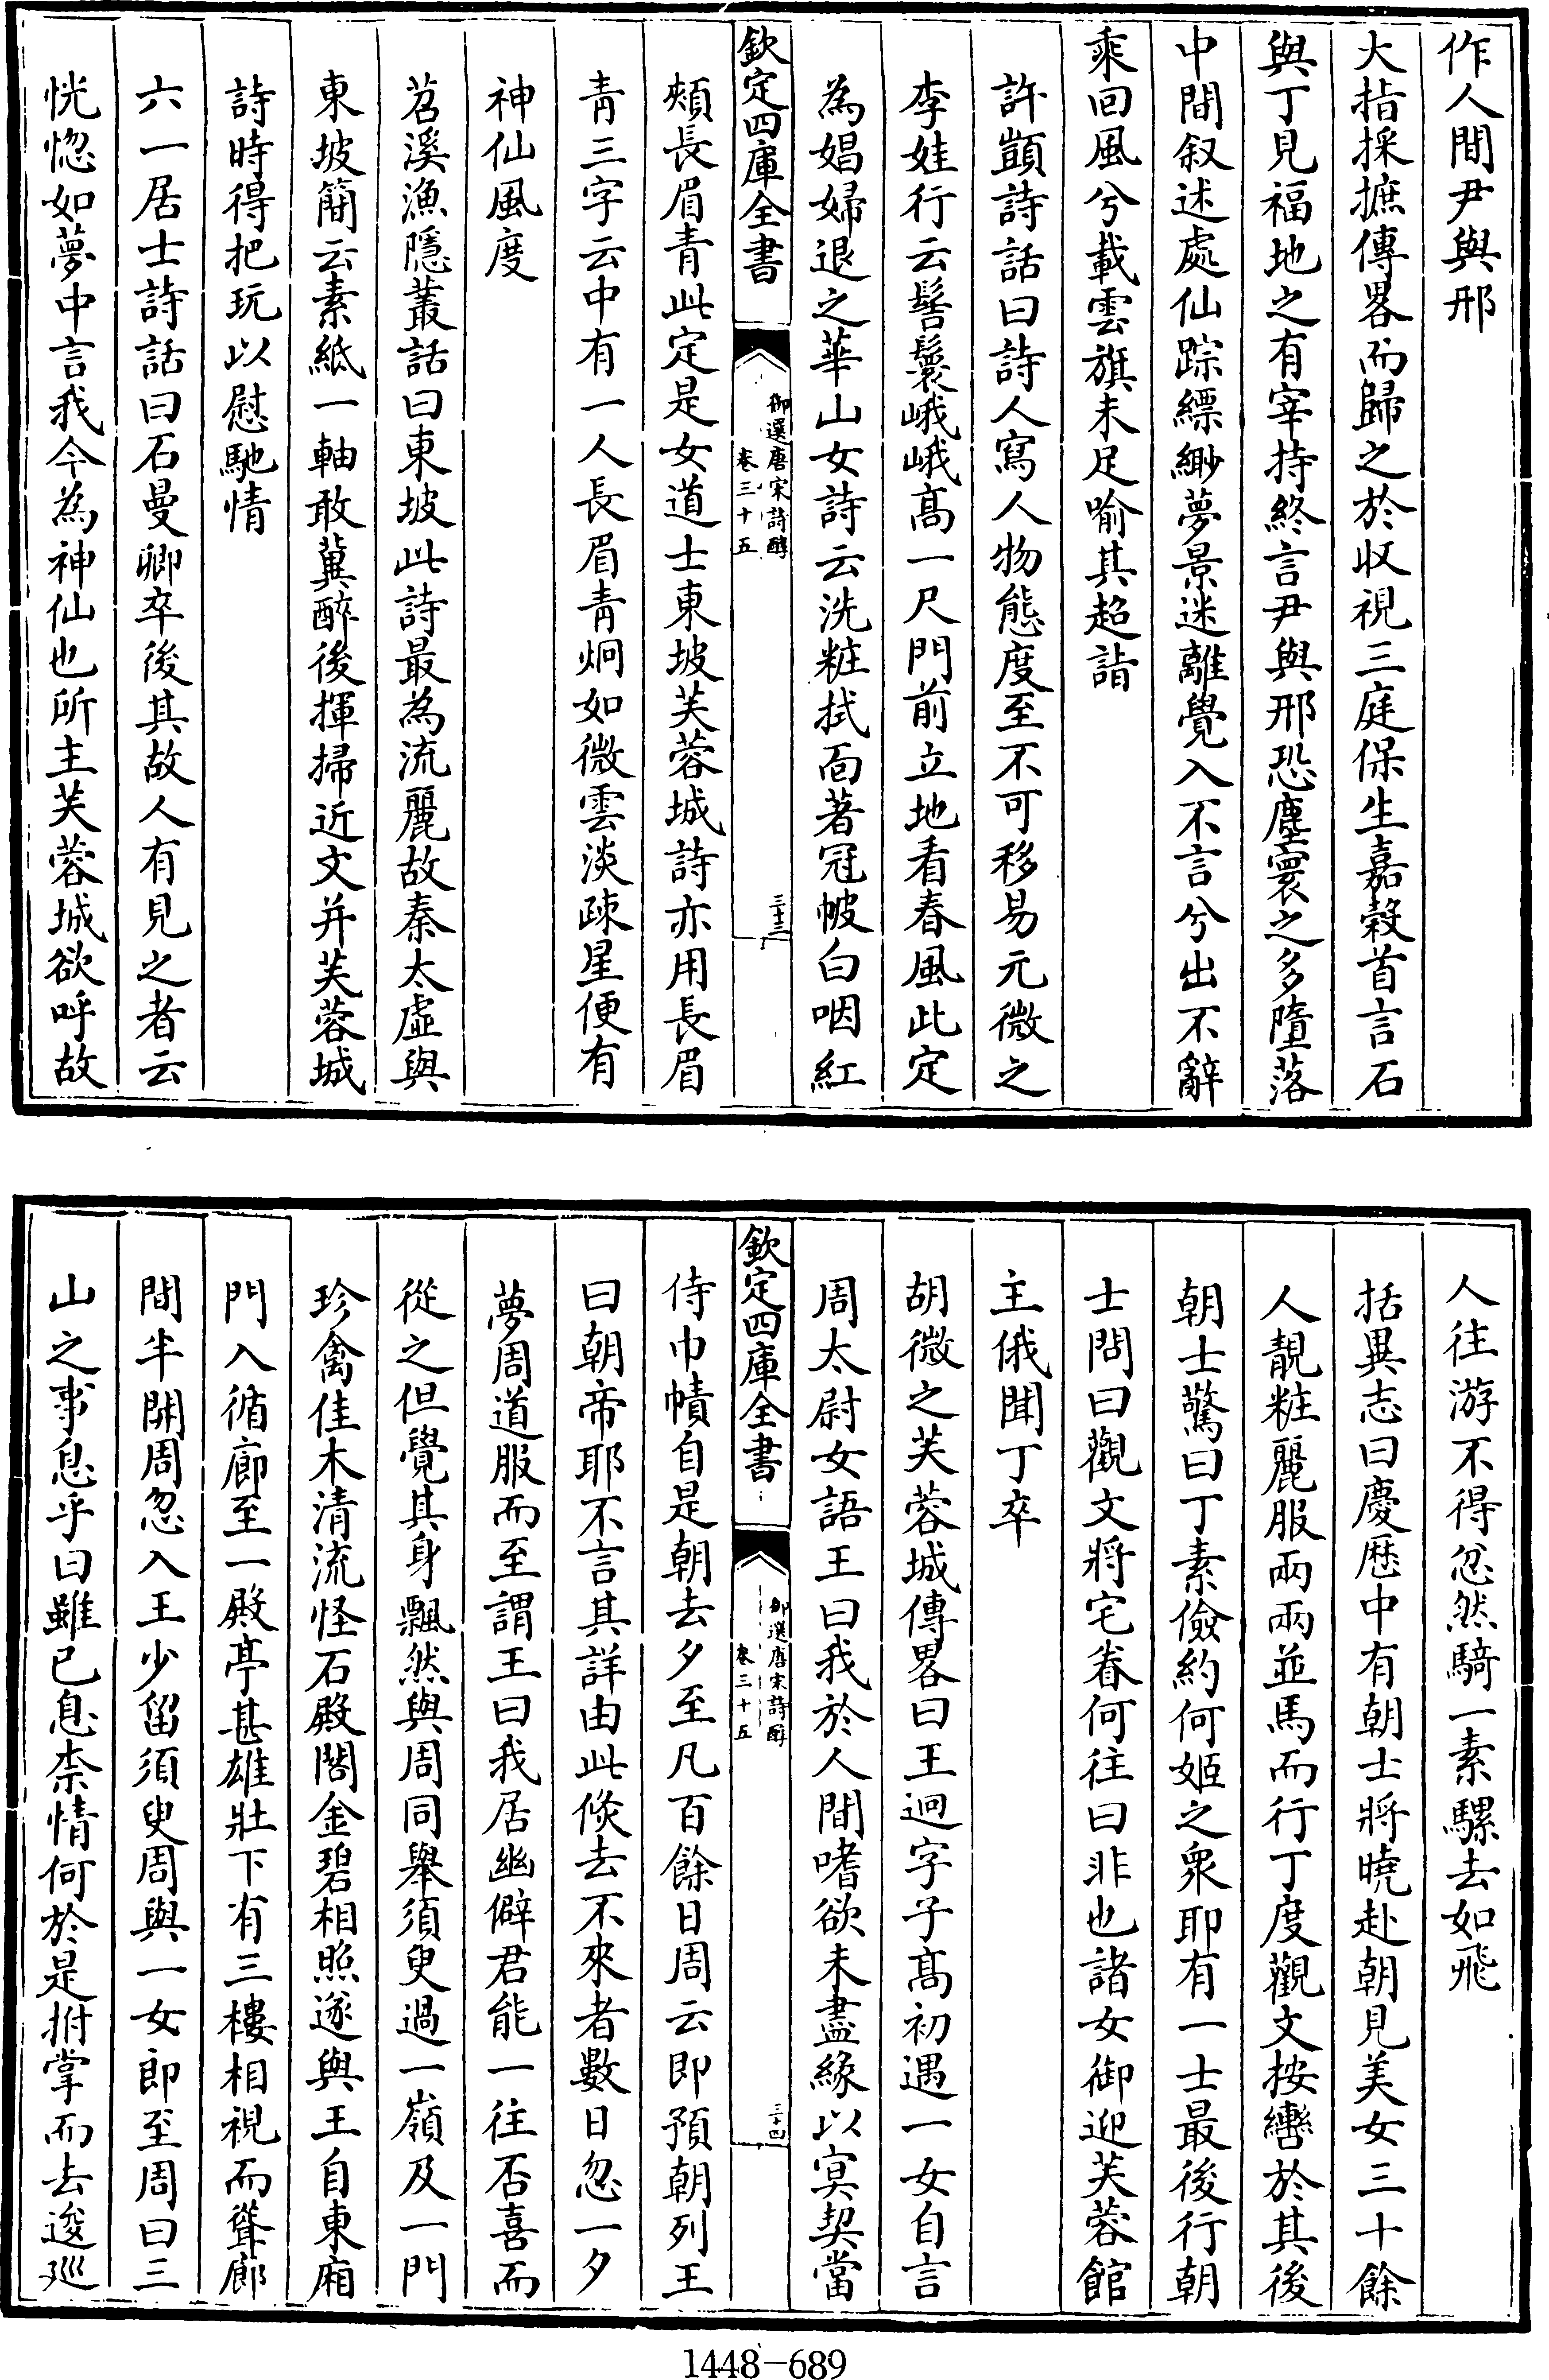 作人間尹與邢
大指採摭傳畧而歸之於收視三庭保生嘉榖首言石
與丁見福地之有宰持終言尹與邢恐塵寰之多墮落
中間叙述處仙踪縹緲夢景迷離覺入不言兮出不辭
乘回風兮載雲旗未足喻其超詣
許顗詩話曰詩人寫人物態度至不可移易元微之
李娃行云髻鬟峨峨髙一尺門前立地看春風此定
為娼婦退之華山女詩云洗粧拭面著冠帔白咽紅
欽定四庫全書
御選唐宋詩醇
卷三十五
三十三
頰長眉青此定是女道士東坡芙蓉城詩亦用長眉
青三字云中有一人長眉青炯如微雲淡疎星便有
神仙風度
苕溪漁隱叢話曰東坡此詩最為流麗故秦太虛與
東坡簡云素紙一軸敢冀醉後揮掃近文并芙蓉城
詩時得把玩以慰馳情
六一居士詩話曰石曼卿卒後其故人有見之者云
恍惚如夢中言我今為神仙也所主芙蓉城欲呼故
人往游不得忿然騎一素騾去如飛
括異志曰慶厯中有朝士將曉赴朝見美女三十餘
人靚粧麗服兩兩並馬而行丁度觀文按轡於其後
朝士驚曰丁素儉約何姬之衆耶有一士最後行朝
士問曰觀文將宅眷何往曰非也諸女御迎芙蓉館
主俄聞丁卒
胡微之芙蓉城傳畧曰王迥字子髙初遇一女自言
周太尉女語王曰我於人間嗜欲未盡緣以冥契當
欽定四庫全書
御選唐宋詩醇
卷三十五
三十四
侍巾幘自是朝去夕至凡百餘日周云即預朝列王
曰朝帝耶不言其詳由此倐去不來者數日忽一夕
夢周道服而至謂王曰我居幽僻君能一往否喜而
從之但覺其身飄然與周同舉須臾過一嶺及一門
珍禽佳木清流怪石殿閣金碧相照遂與王自東廂
門入循廊至一殿亭甚雄壯下有三樓相視而聳廊
間半開周忽入王少留須臾周與一女郎至周曰三
山之事息乎曰雖已息柰情何於是拊掌而去逡廵
1448-689